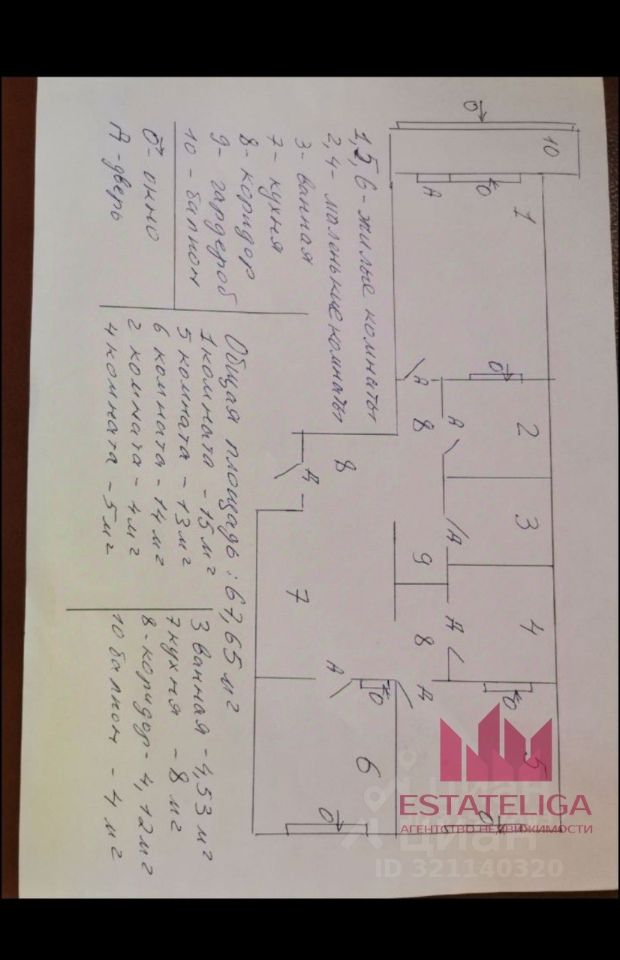 1,5,6 - жилые комнаты
2,4 - маленькие комнаты
3 - ванная
7 - кухня
8 - коридор
9 - гардероб
10 - балкон
О - окно
Д - дверь
Общая площадь: 67,65 м²
1 комната - 15 м²
5 комната - 13 м²
6 комната - 14 м²
2 комната - 4 м²
4 комната - 5 м²
3 ванная - 4,53 м²
7 кухня - 8 м²
8 - коридор - 4,12 м²
10 балкон - 4 м²
О
10
Д
О
1
О
Д
8
Д
2
8
Д
3
Д
9
7
4
8
Д
Д
О
Д
О
5
6
О
О
ESTATELIGA
АГЕНТСТВО НЕДВИЖИМОСТИ
циан
циан
ID 321140320